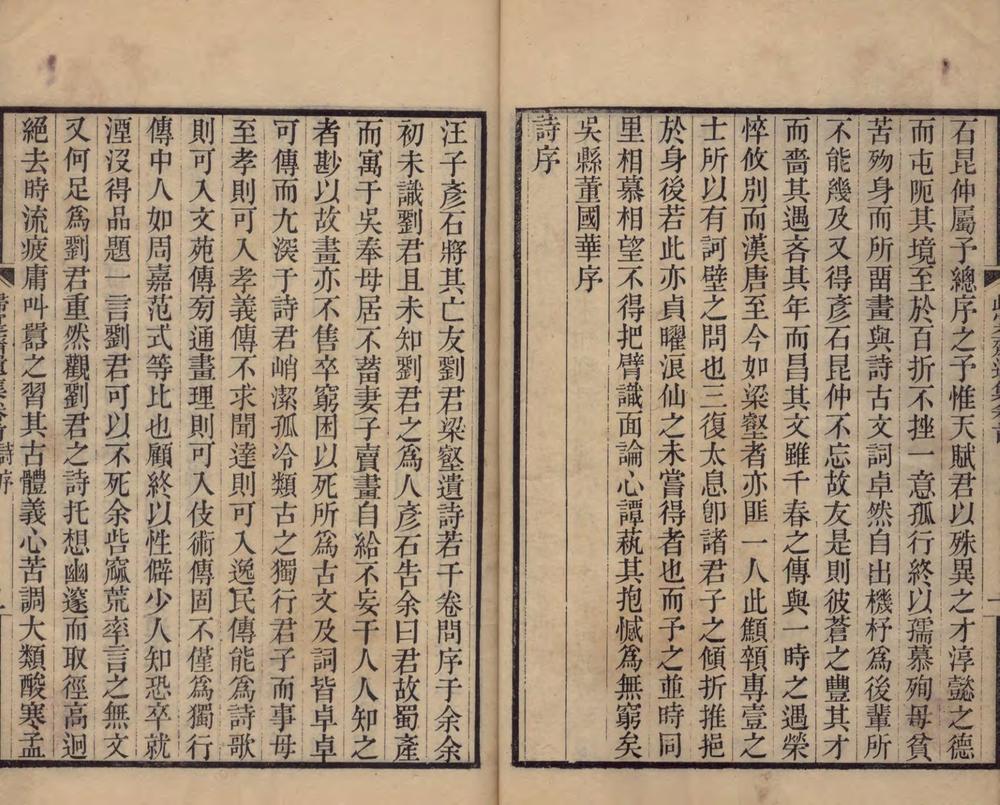 石昆仲屬予總序之予惟天賦君以殊異之才淳懿之德
而屯阨其境至於百折不挫一意孤行終以孺慕殉母貧
苦殀身而所畱畫與詩古文詞卓然自出機杼為後輩所
不能幾及又得彥石昆仲不忘故友是則彼蒼之豐其才
而嗇其遇吝其年而昌其文雖千春之傳與一時之遇榮
悴攸別而漢唐至今如梁壑者亦匪一人此顦顇專壹之
士所以有訶壁之問也三復太息卽諸君子之傾折推挹
於身後若此亦貞曜浪仙之未嘗得者也而予之並時同
里相慕相望不得把臂識面論心譚蓺其抱憾為無窮矣
吳縣董國華序
詩序
汪子彥石將其亡友劉君梁壑遺詩若干卷問序于余余
初未識劉君且未知劉君之為人彥石告余曰君故蜀產
而寓于吳奉母居不蓄妻子賣畫自給不妄干人人知之
者尠以故畫亦不售卒窮困以死所為古文及詞皆卓卓
可傳而尤深于詩君峭潔孤冷類古之獨行君子而事母
至孝則可入孝義傳不求聞達則可入逸民傳能為詩歌
則可入文苑傳旁通畫理則可入伎術傳固不僅為獨行
傳中人如周嘉范式等比也顧終以性僻少人知恐卒就
湮沒得品題一言劉君可以不死余呰窳荒率言之無文
又何足為劉君重然觀劉君之詩托想幽邃而取徑高迥
絕去時流疲庸叫囂之習其古體義心苦調大類酸寒孟